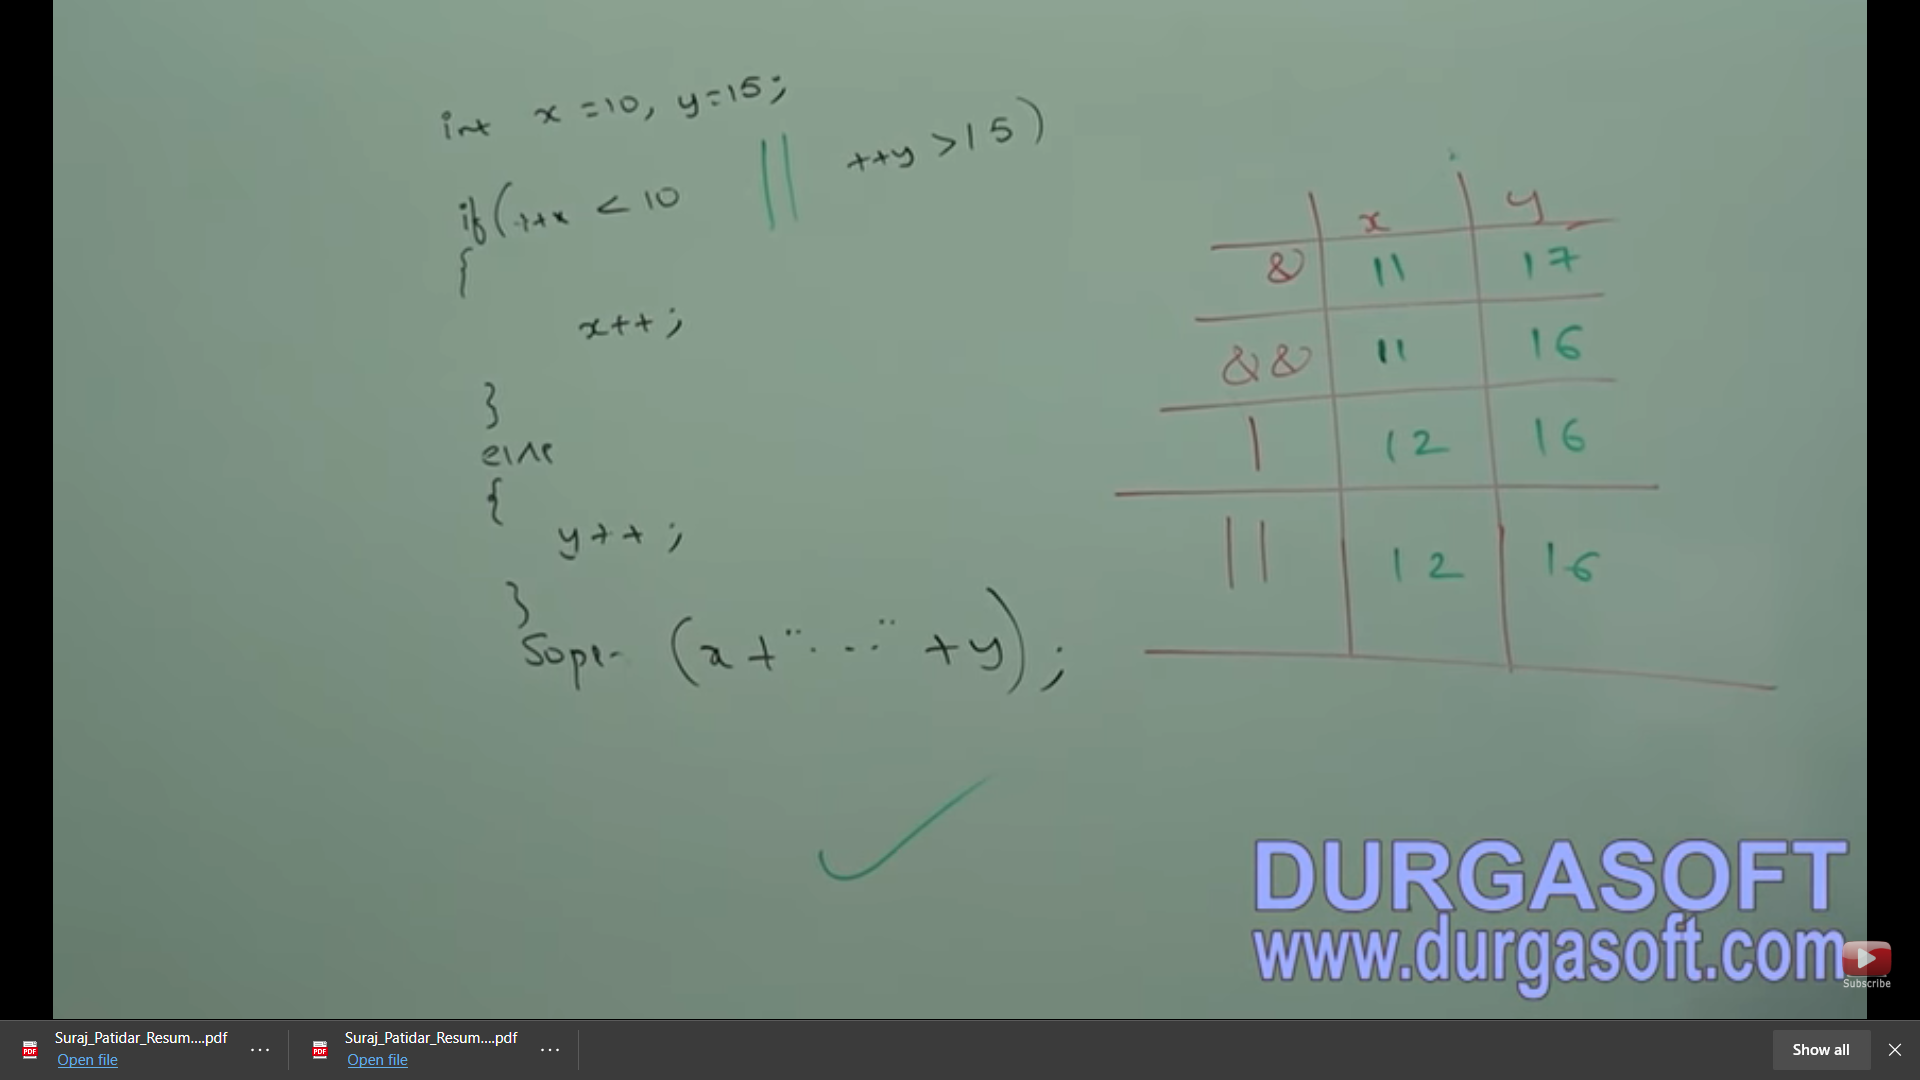 int x = 10, y = 15;
if(++x < 10 || ++y > 15)
{
x++;
}
else
{
y++;
}
Sopln (x + "..." + y);
x y
& 11 17
&& 11 16
| 12 16
|| 12 16
DURGASOFT
www.durgasoft.com
Subscribe
Suraj_Patidar_Resum....pdf
Open file
Suraj_Patidar_Resum....pdf
Open file
Show all